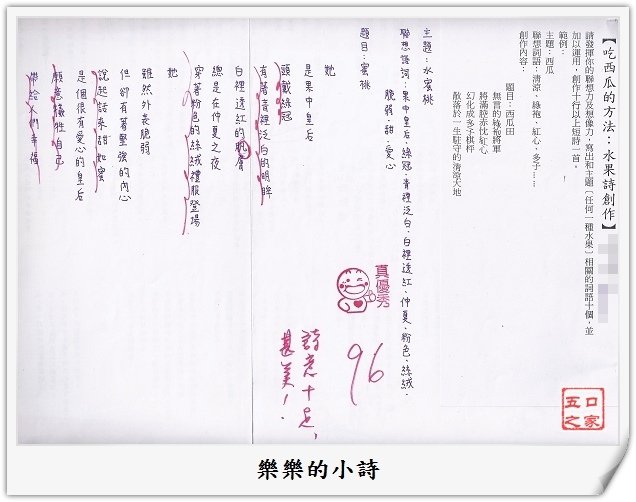 【吃西瓜的方法：水果詩創作】
請發揮你的聯想力及想像力，寫出和主題（任何一種水果）相關的詞語十個，並
加以運用，創作十行以上短詩一首。
範例：
主題：西瓜
聯想詞語：清涼、綠袍、紅心、多子……
創作內容：
題目：西瓜田
無言的綠袍將軍
將滿腔赤忱紅心
幻化成多子棋枰
散落於一生駐守的清涼大地
主題：水蜜桃
聯想詞語：果中皇后、綠冠、青裡泛白、白裡透紅、仲夏、粉色、絲絨、
脆弱、甜、愛心
題目：蜜桃
她
是果中皇后
頭戴綠冠
有著青裡泛白的明眸
白裡透紅的肌膚
總是在仲夏之夜
穿著粉色的絲絨禮服登場
她
雖然外表脆弱
但卻有著堅強的內心
說起話來甜如蜜
是個很有愛心的皇后
願意犧牲自己
帶給人們幸福
真優秀
96
詩意十足，
甚美！
五口之家
樂樂的小詩